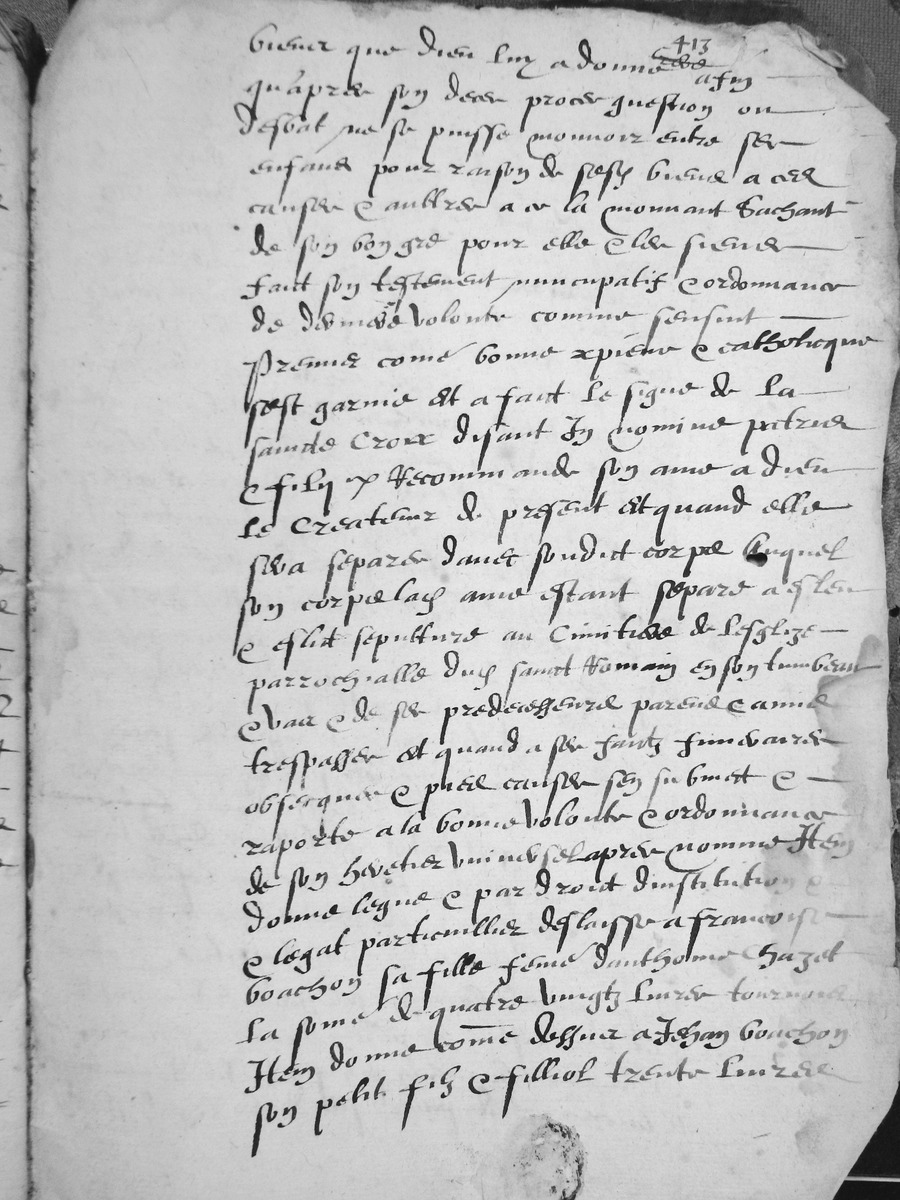 413
biens que dieu luy a donne afin
qu'apres son deces proces question ou
desbat ne se puisse mouvoir entre ses
enfans pour raison de sesd biens a ces
causes & aultres a ce la mouvant Sachant
de son bon gre pour elle & les siens
faict son testement nuncupatif & ordonnance
de derniere volonte comme sensuit
Premier come bonne xpiene & catholicque
sest garnie et a faict le signe de la
saincte Croix disant In nomine patris
& filij Recommande son ame a dieu
le Createur de present et quand elle
sera separee davec sondict corps auquel
son corps lad ame estant separe a esleu
& eslit sepulture au Cimitiere de lesglize
parrochialle dud sainct Romain en son tumbeau
& vas & de ses predecesseurs parens & amis
trespasses et quand a ses faictz funeraires
obseques & pies causes sen submect &
raporte a la bonne volonte & ordonnance
de son heretier universel apres nomme Item
donne legue & par droict dinstitution &
& legat particullier deslaisse a francoise
boachon sa fille feme danthoine Chazet
la some de quatre vingtz livres tournois
Item donne come dessus a Jehan bouchon
son petit filz & filliol trente livres